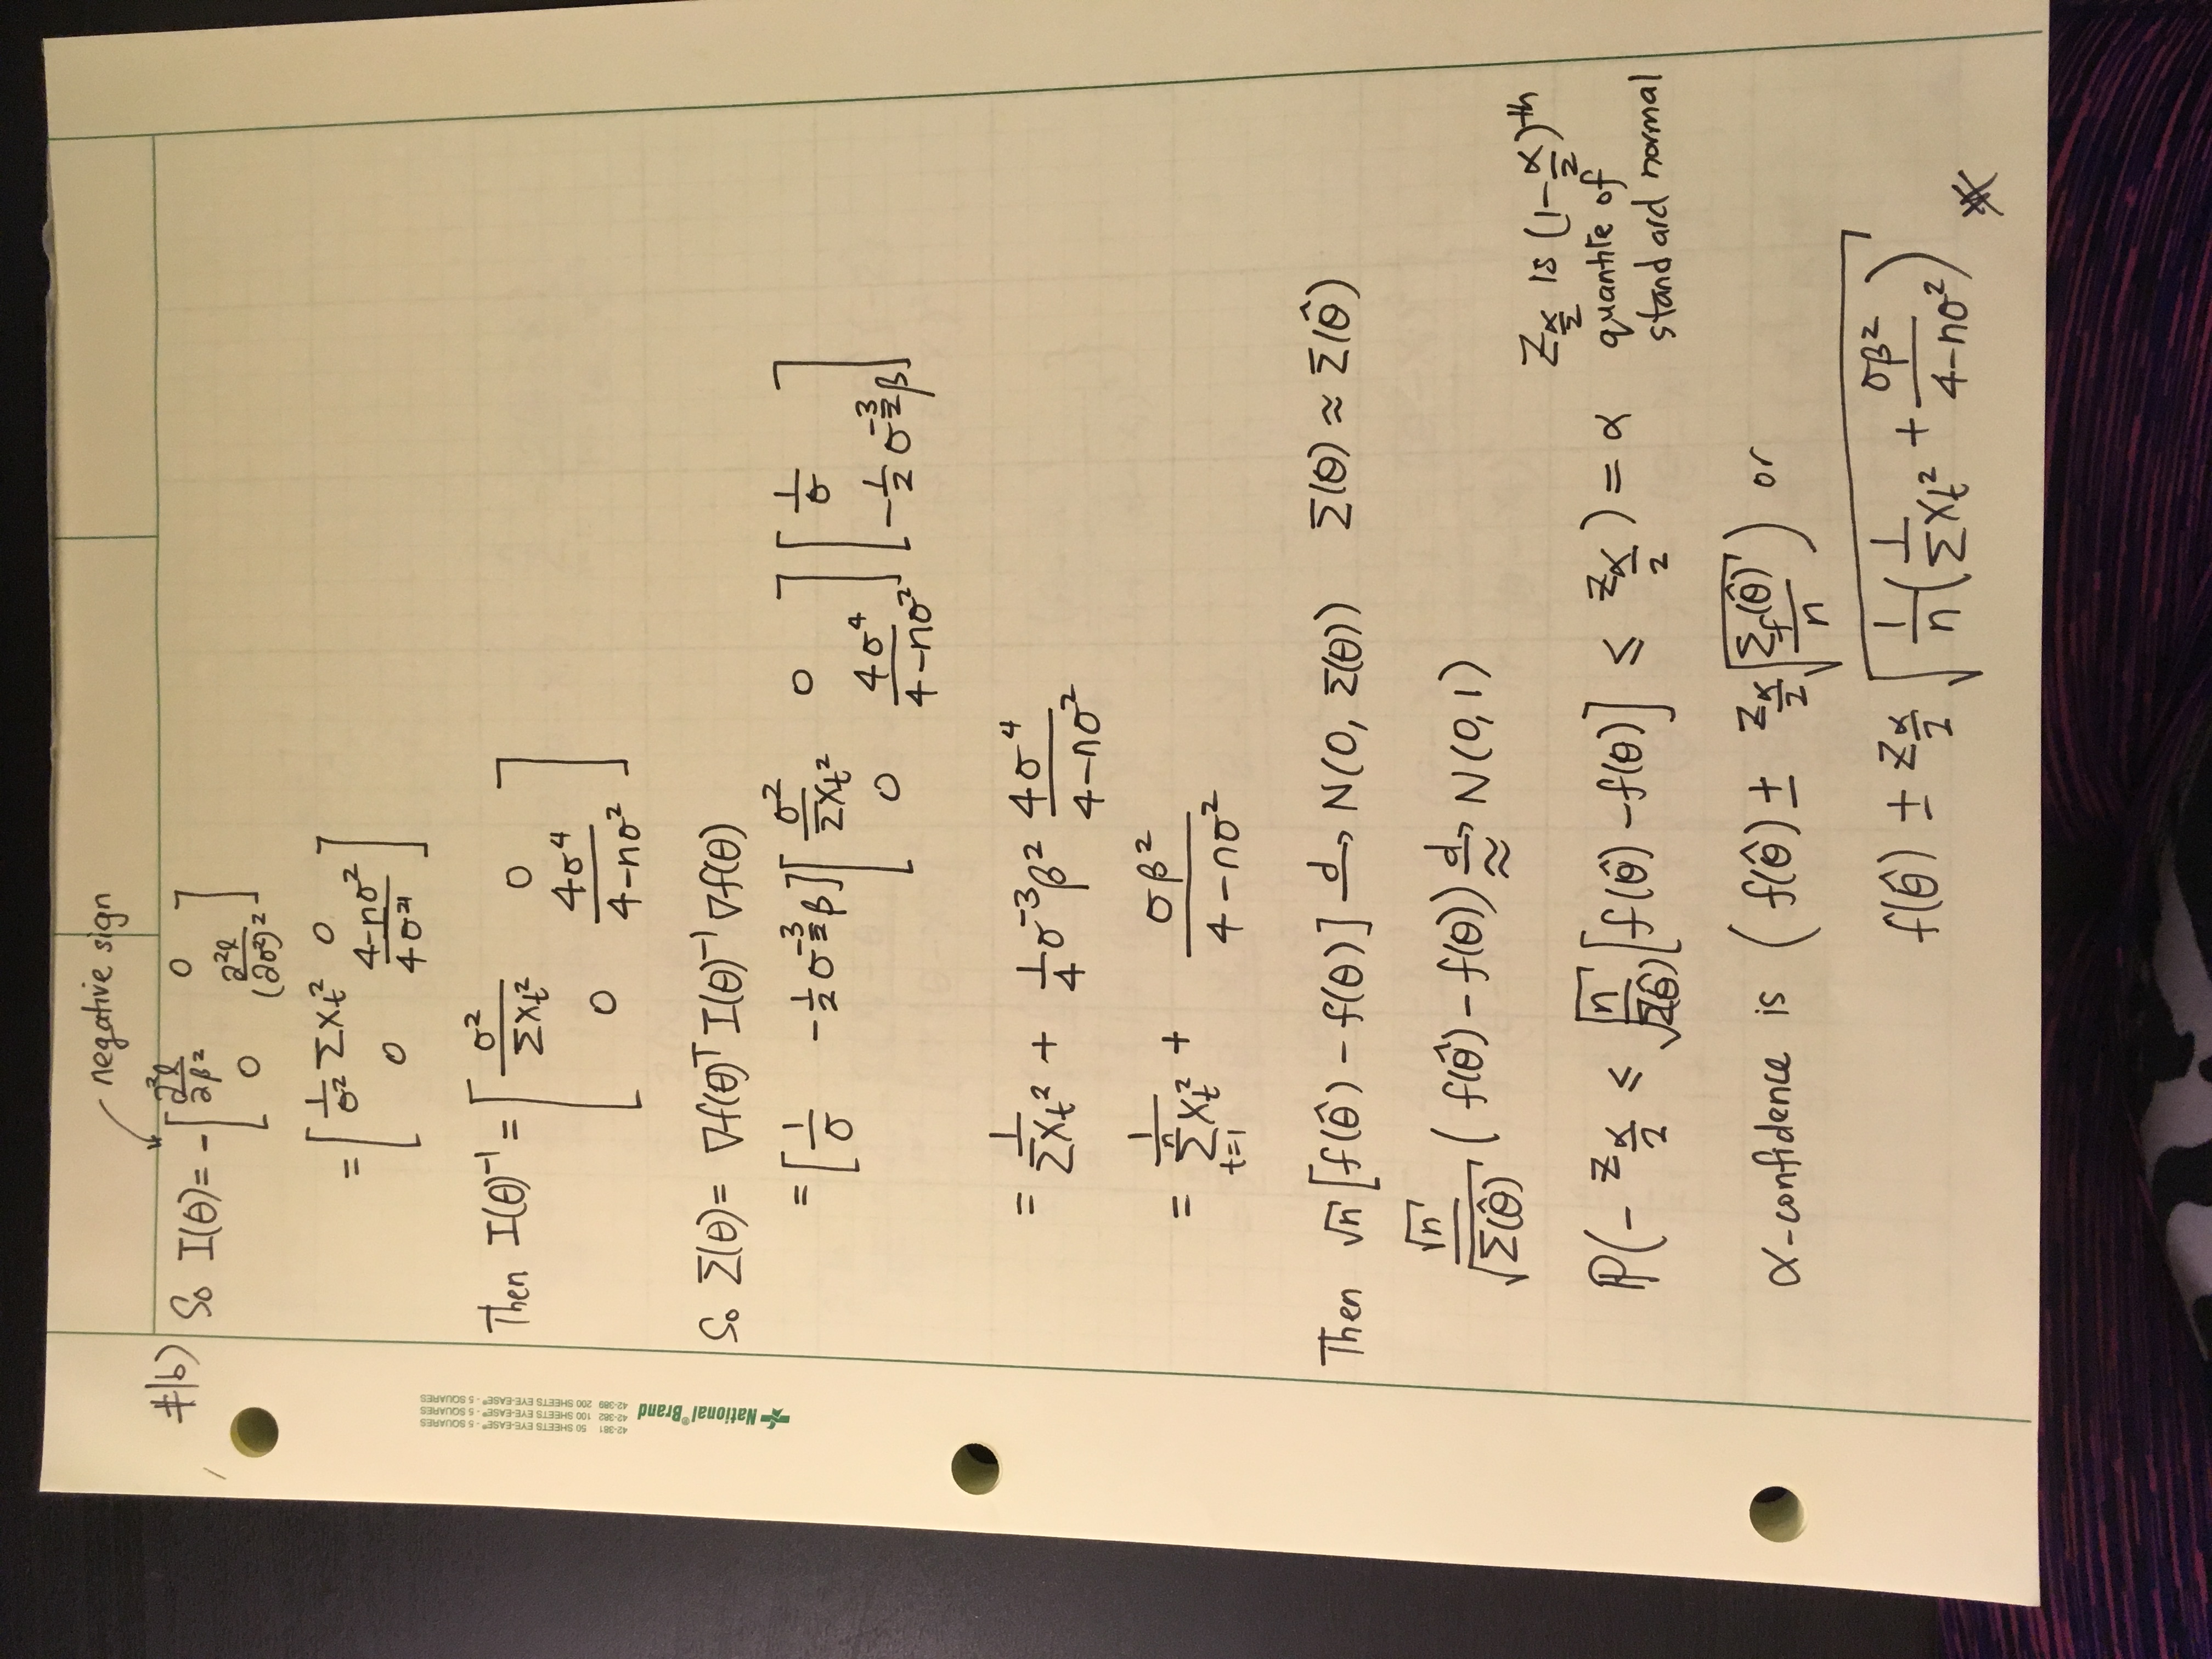 negative sign
#1b) So I(θ) = - [ ∂²ℓ/∂β² 0
0 ∂²ℓ/(∂σ²)² ]
= [ 1/σ² Σx_t² 0
0 (4-nσ²)/(4σ⁴) ]
Then I(θ)⁻¹ = [ σ²/Σx_t² 0
0 4σ⁴/(4-nσ²) ]
So Σ(θ) = ∇f(θ)ᵀ I(θ)⁻¹ ∇f(θ)
= [ 1/σ -1/2 σ^(-3/2) β ] [ σ²/Σx_t² 0 ; 0 4σ⁴/(4-nσ²) ] [ 1/σ ; -1/2 σ^(-3/2) β ]
= 1/Σx_t² + 1/4 σ⁻³ β² 4σ⁴/(4-nσ²)
= 1/Σ_{t=1}^{n} x_t² + σβ²/(4-nσ²)
Then √n [f(θ̂) - f(θ)] →d N(0, Σ(θ)) Σ(θ) ≈ Σ(θ̂)
√n/√Σ(θ̂) ( f(θ̂) - f(θ)) →d ≈ N(0,1)
Z_{α/2} is (1-α/2)^th
quantile of
standard normal
ℙ(- z_{α/2} ≤ √n/√Σ(θ̂) [f(θ̂) - f(θ)] ≤ z_{α/2} ) = α
α-confidence is ( f(θ̂) ± z_{α/2} √(Σ_f(θ̂)/n) ) or
f(θ̂) ± z_{α/2} √( 1/n ( 1/Σx_t² + σβ²/(4-nσ²) ) )
42-381 50 SHEETS EYE-EASE® - 5 SQUARES
42-382 100 SHEETS EYE-EASE® - 5 SQUARES
42-389 200 SHEETS EYE-EASE® - 5 SQUARES
National® Brand